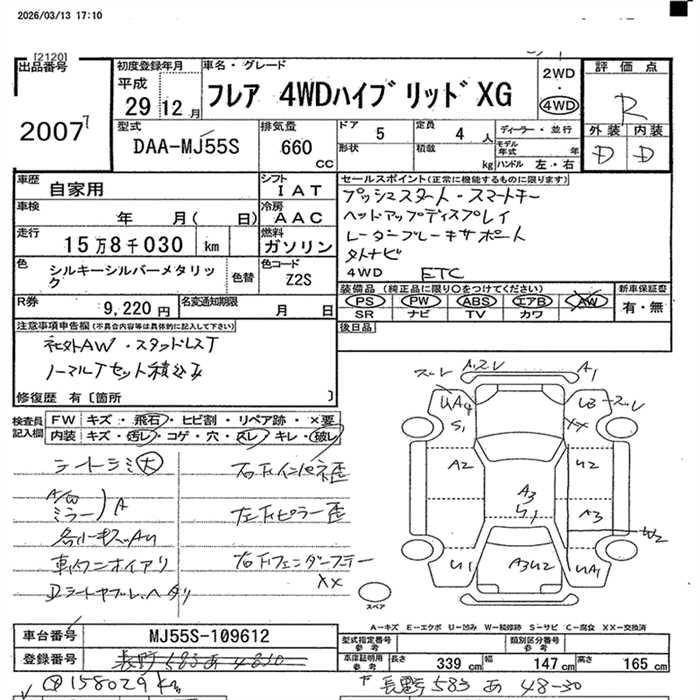 2026/03/13 17:10
[2120]
出品番号
2007
初度登録年月
平成
29 12 月
車名・グレード
フレア 4WDハイブリッドXG
2WD
・
4WD
評価点
R
外装 内装
D D
型式
DAA-MJ55S
排気量
660
CC
ドア 5
形状
定員 4 人
積載 kg
ディーラー・並行
モデル年式 年
ハンドル 左・右
車歴
自家用
シフト
I AT
車検
年 月( 日)
冷房
AAC
走行
15万8千030 km
燃料
ガソリン
色
シルキーシルバーメタリック
色替
色コード
Z2S
R券
9,220円
名変通知期限
月 日
セールスポイント(正常に機能するものに限ります)
プッシュスタート・スマートキー
ヘッドアップディスプレイ
レーダーブレーキサポート
外ナビ
4WD ETC
装備品(純正品に限り○をつけてください)
PS PW ABS エアB AW
SR ナビ TV カワ
新車保証書
有・無
後日品
注意事項申告欄(不具合内容等は具体的に記入して下さい)
社外AW・スタッドレスT
ノーマルTセット積込み
修復歴 有〔箇所 〕
検査員記入欄
FW キズ・飛石・ヒビ割・リペア跡・×要
内装 キズ・汚レ・コゲ・穴・スレ・キレ・破レ
シートシミ大
A/W
ミラー)A
車内ニオイアリ
右Fインパネ歪
左Fピラー歪
スレ A2レ A1
UA4 U3 スレ
S1 XX
A2 U2
A3
A3
W2
U1 A3U2 UA1
スペア
A−キズ E−エクボ U−凹み W−補修跡 S−サビ C−腐食 XX−交換済
車台番号
MJ55S-109612
登録番号
長野583あ4830
型式指定番号
参考
類別区分番号
参考
車庫証明用
参考
長さ 339 cm 幅 147 cm 高さ 165 cm
158029km
長野583 あ 48-30